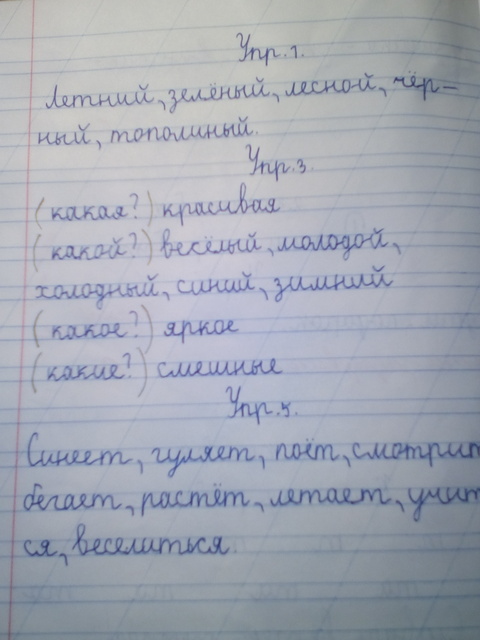 Упр.1.
Летний, зелёный, лесной, чёр-
ный, тополиный.
Упр.3.
(какая?) красивая
(какой?) весёлый, молодой,
холодный, синий, зимний
(какое?) яркое
(какие?) смешные
Упр.5.
Синеет, гуляет, поёт, смотрит
бегает, растёт, летает, учит
ся, веселиться